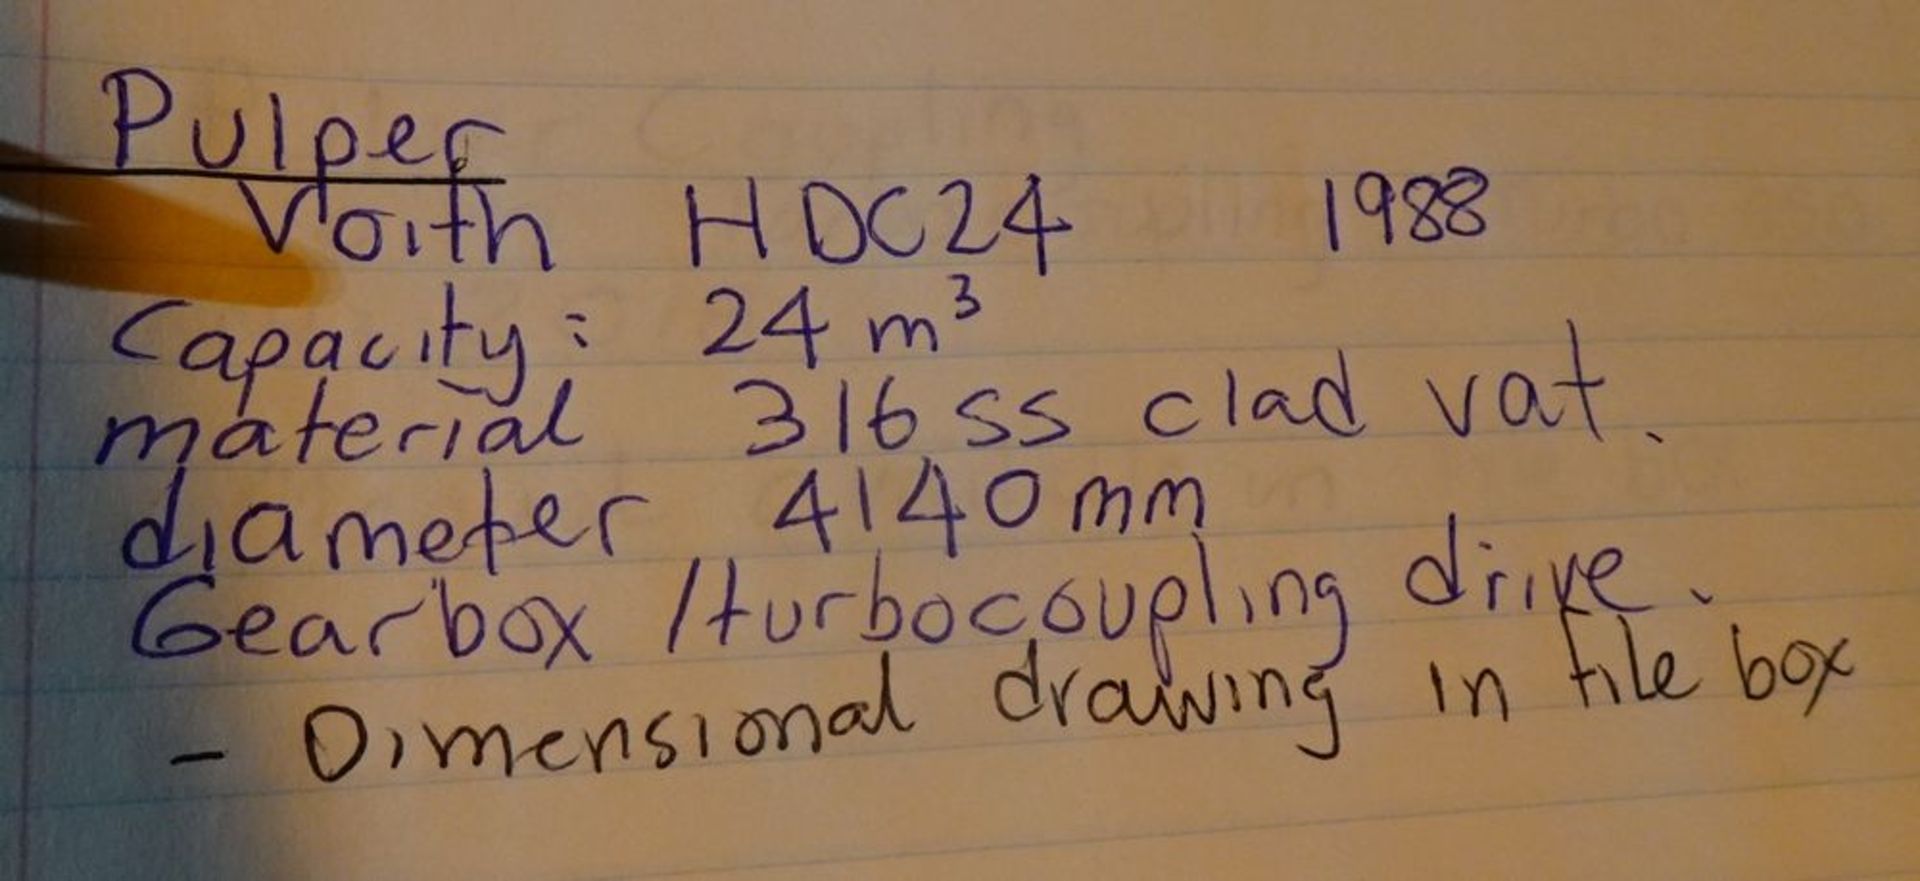 Pulper
Voith HDC24 1988
Capacity: 24 m³
material 316 ss clad vat.
diameter 4140 mm
Gearbox / turbocoupling drive.
- Dimensional drawing in file box